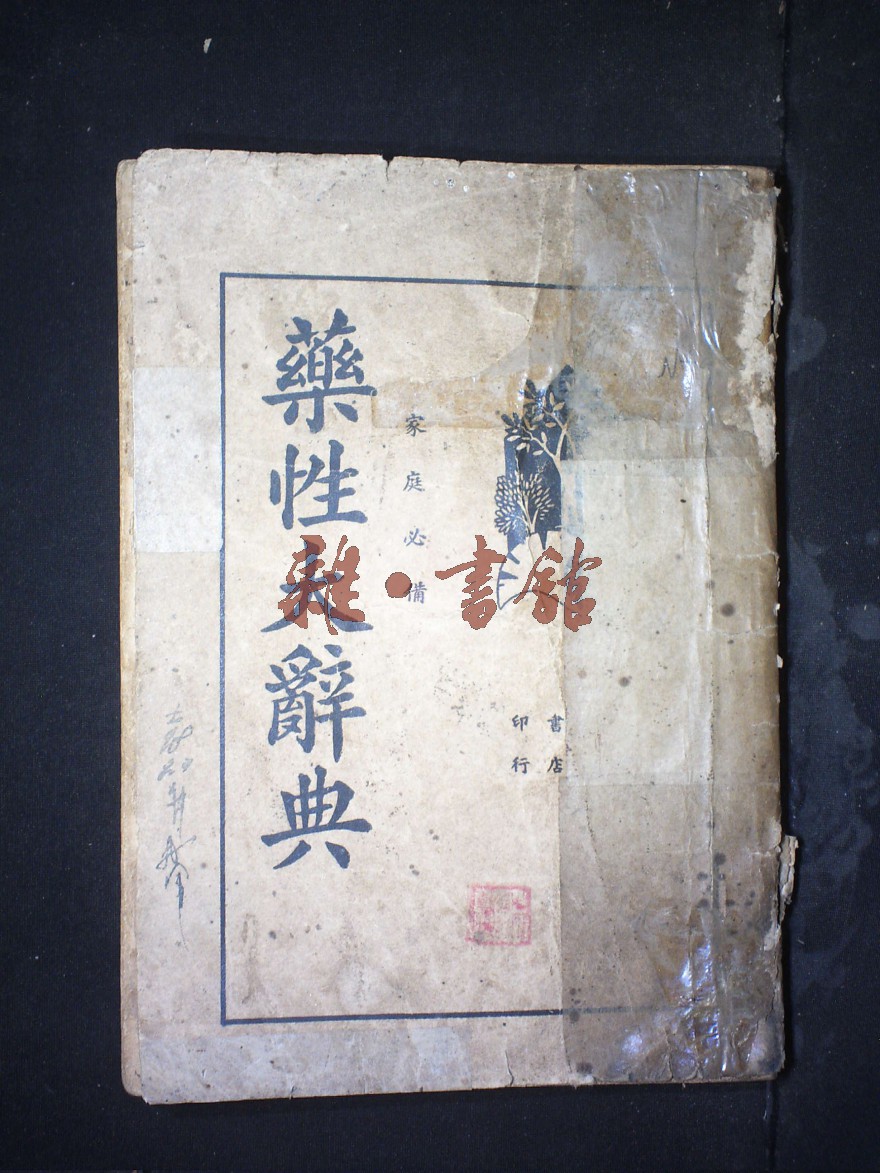 藥性大辭典
家庭必備
書店
印行
雜·書館